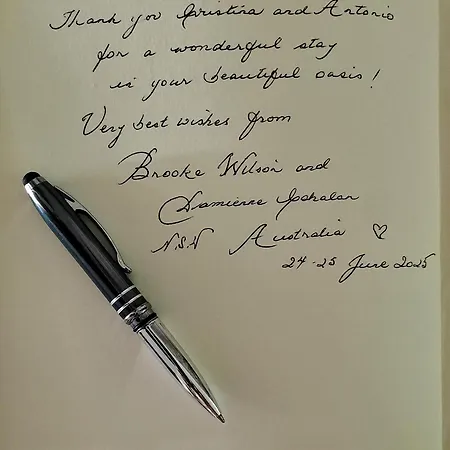 Thank you Christina and Antonio
for a wonderful stay
in your beautiful oasis!
Very best wishes from
Brooke Wilson and
NSW Australia ♡
24-25 June 2025